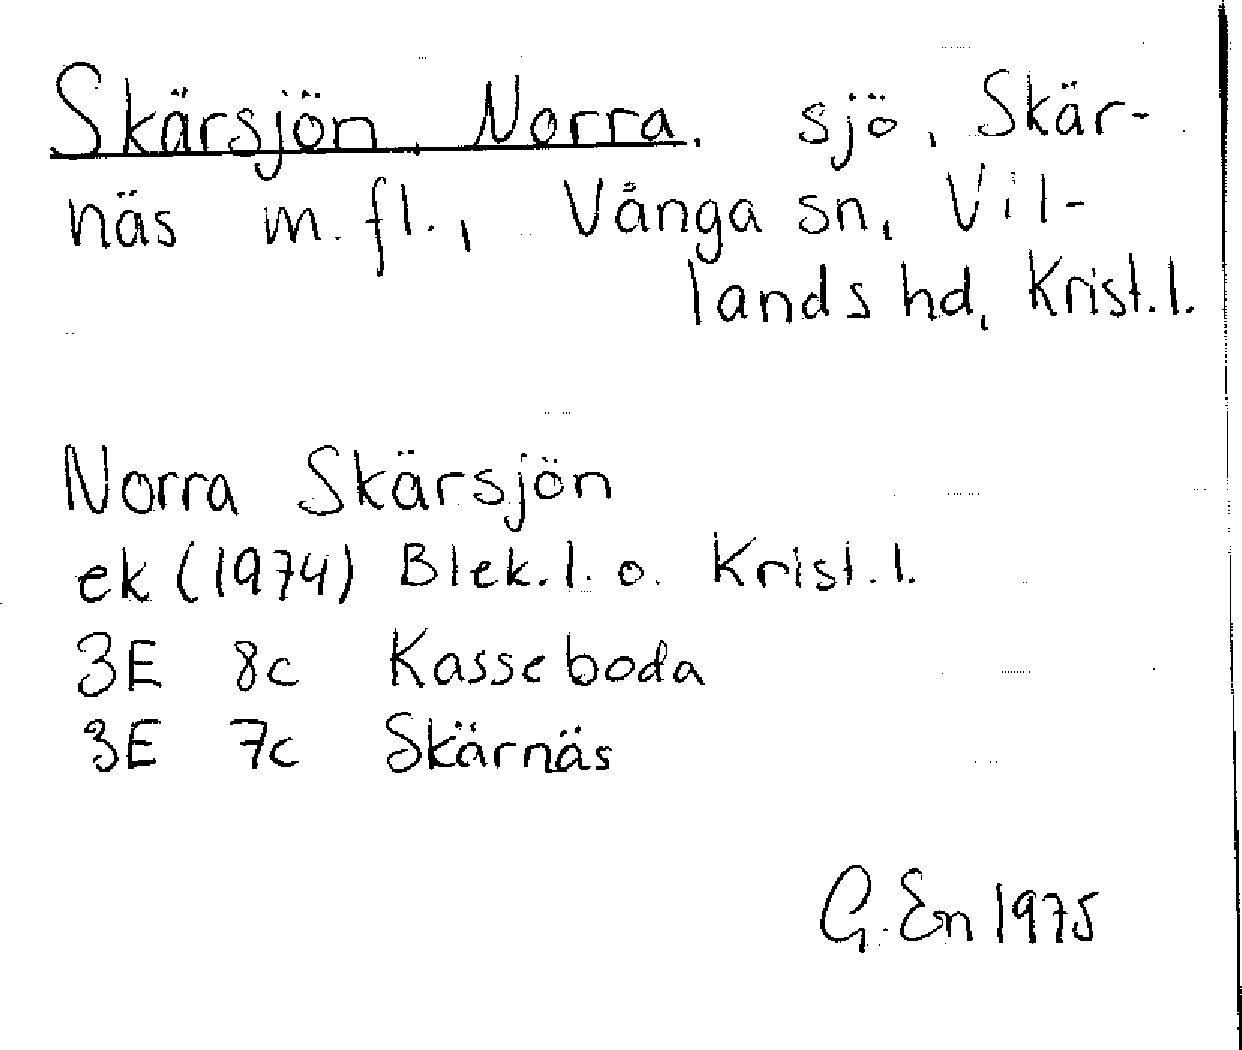 Skärsjön, Norra, sjö, Skär-
näs m.fl., Vånga sn, Vil-
lands hd, Krist.l.
Norra Skärsjön
ek (1974) Blek.l. o. Krist.l.
3E 8c Kasseboda
3E 7c Skärnäs
G. En 1975